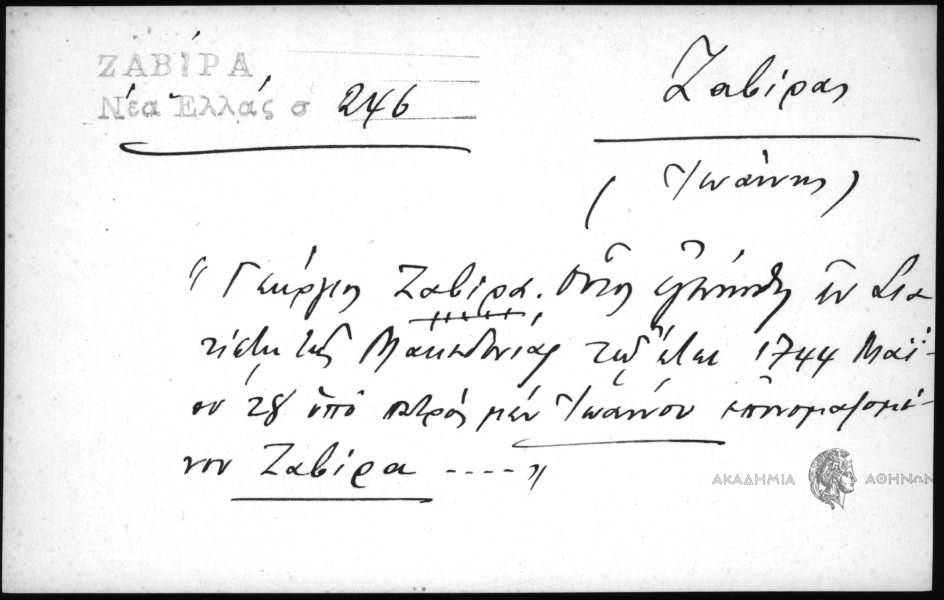 ΖΑΒΙΡΑ
Νέα Ἑλλάς σ 246
Ζαβίρας
(Ἰωάννης)
"Γεώργιος Ζαβίρα. Οὗτος ἐγεννήθη ἐν Σια-
τίστῃ τῆς Μακεδονίας τῷ ἔτει 1744 Μαΐ-
ου 28 ὑπό πατρός μέν Ἰωάννου ἐπονομαζομέ-
νου Ζαβίρα ----"
ΑΚΑΔΗΜΙΑ ΑΘΗΝΩΝ